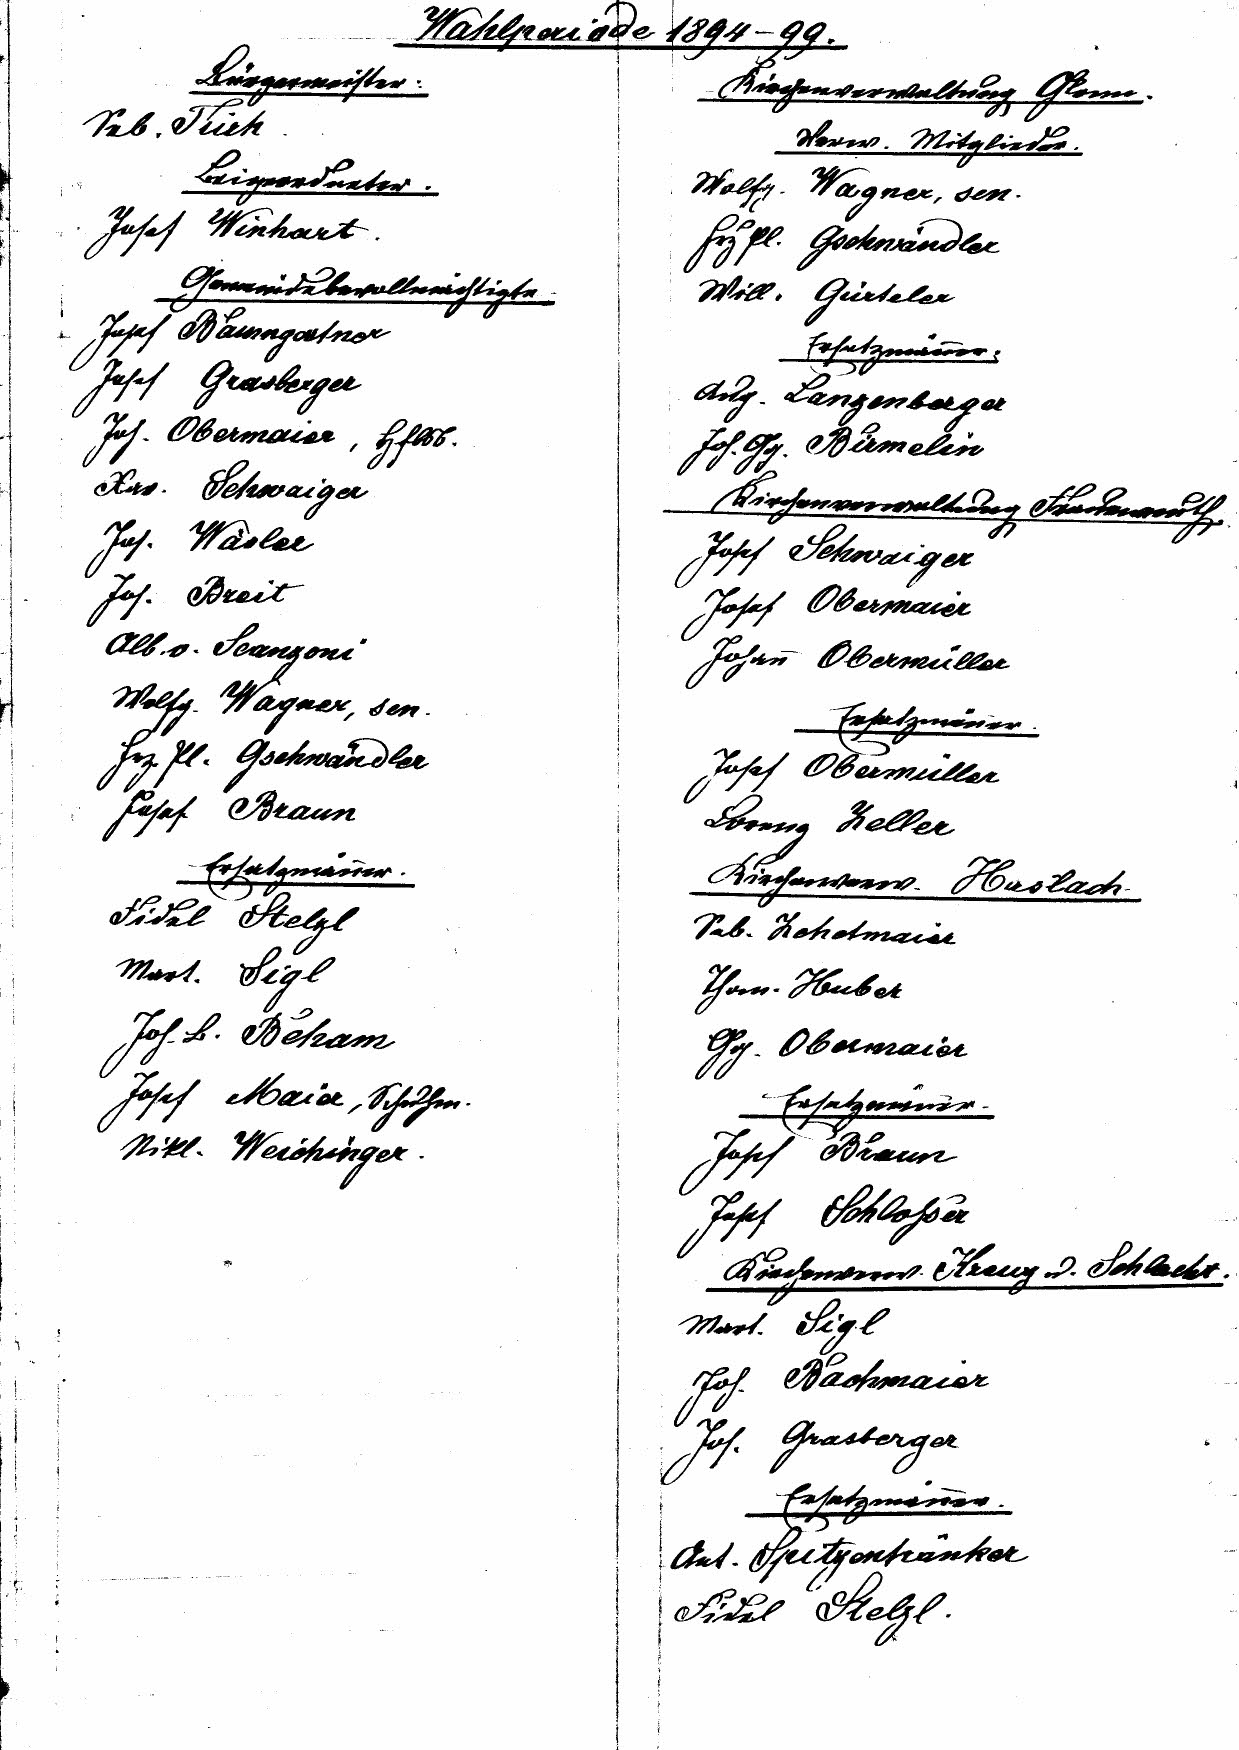 Wahlperiode 1894–99.
Bürgermeister:
Seb.
Beigeordneter.
Josef Winhart.
Gemeindebevollmächtigte
Josef Baumgartner
Josef Grasberger
Joh. Obermaier,
Xav. Schwaiger
Joh. Wäsler
Joh. Breit
Alb. v. Scanzoni
Wolfg. Wagner, sen.
Frz. Pl. Gschwändler
Josef Braun
Ersatzmänner.
Fidel Stelzl
Mart. Sigl
Joh. B. Beham
Josef Maier, Schuhm.
Nikl. Weichinger.
Kirchenverwaltung Glonn.
Verw. Mitglieder.
Wolfg. Wagner, sen.
Frz Pl. Gschwändler
Will. Gürteler
Ersatzmänner:
Aug. Langenberger
Joh. Gg. Birmelin
Kirchenverwaltung Frauenreuth.
Josef Schwaiger
Josef Obermaier
Johann Obermüller
Ersatzmänner.
Josef Obermüller
Lorenz Zeller
Kirchenverw. Haslach.
Seb. Zehetmaier
Thom. Huber
Gg. Obermaier
Ersatzmänner.
Josef Braun
Josef Schlosser
Kirchenverw. Kreuz u. Schlacht.
Mart. Sigl
Joh. Bachmaier
Joh. Grasberger
Ersatzmänner.
Ant. Spitzentränker
Fidel Stelzl.